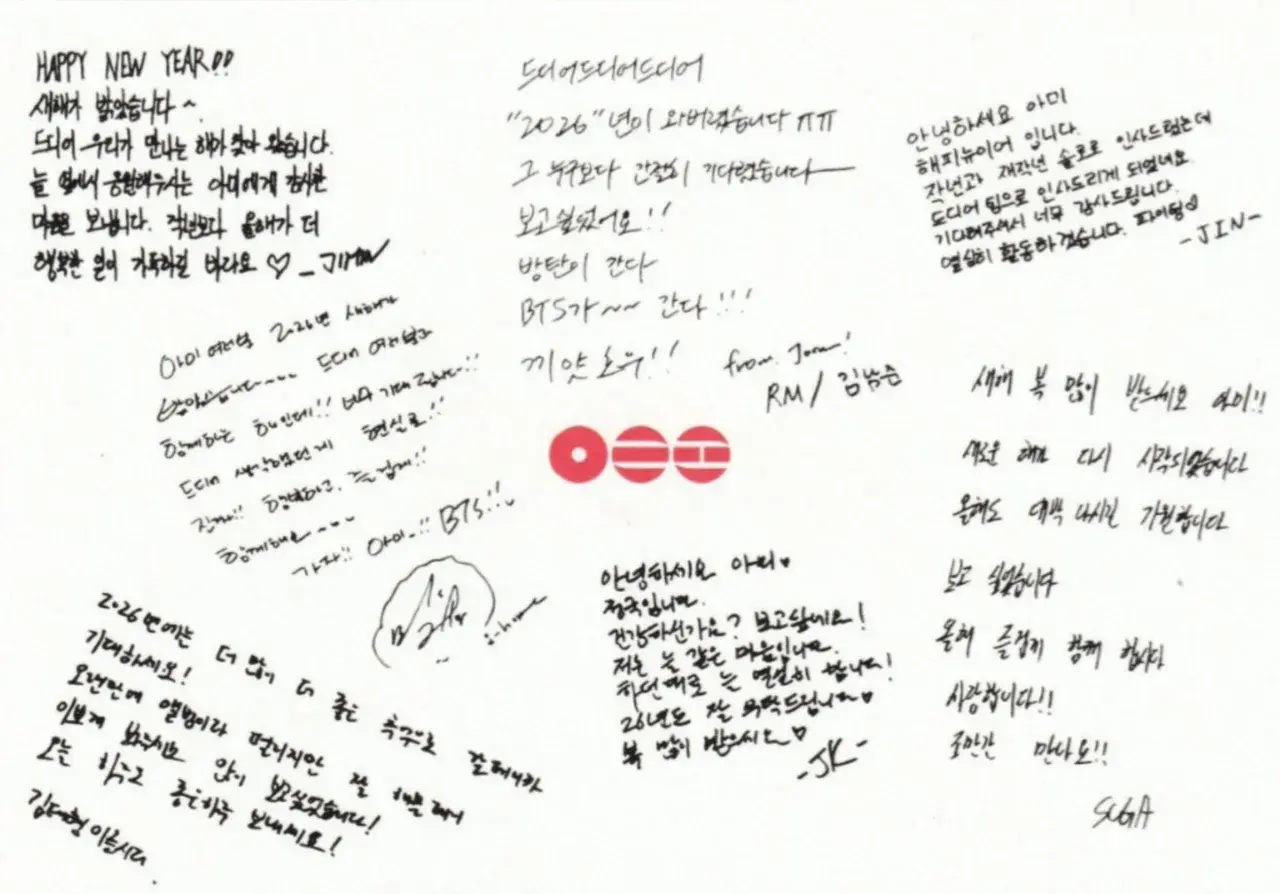 HAPPY NEW YEAR!!
새해가 밝았습니다~
드디어 우리가 만나는 해가 찾아 왔습니다.
늘 옆에서 응원해주시는 아미에게 감사한
마음을 보냅니다. 작년보다 올해가 더
행복한 일이 가득하길 바라요 ♡ _JIMIN
드디어드디어드디어
"2026"년이 와버렸습니다 ㅠㅠ
그 누구보다 간절히 기다렸습니다
보고싶었어요!!
방탄이 간다
BTS가~~ 간다!!!
끼얏호우!!
from. Joon!
RM / 김남준
안녕하세요 아미
해피뉴이어 입니다.
작년과 재작년 솔로로 인사드렸는데
드디어 팀으로 인사드리게 되었네요
기다려주셔서 너무 감사드립니다.
열심히 활동하겠습니다. 파이팅♡
-JIN-
아미 여러분 2026년 새해가
밝았습니다~~ 드디어 여러분과
함께하는 해인데!! 너무 기대 됩니다!!
드디어 생각했던게 현실로!!
진짜!! 행복하고, 즐겁게!!
함께해요~~
가자!! 아미_!! BTS!!
j-hope
새해 복 많이 받으세요 아미!!
새로운 해가 다시 시작되었습니다
올해도 대박 나시길 기원합니다
보고 싶었습니다
올해 즐겁게 함께 합시다
사랑합니다!!
조만간 만나요!!
SUGA
안녕하세요 아미♥
정국입니다.
건강하신가요? 보고싶네요!
저는 늘 같은 마음입니다.
하던대로 늘 열심히 합니다!
26년도 잘 부탁드립니다♥
복 많이 받으세요♡
-JK-
2026년에는 더 많이 더 좋은 추억으로 갈테니까
기대하세요!
오랜만에 앨범이라 떨리지만 잘 해볼테니
이쁘게 봐주세요 많이 보고싶었습니다!
오늘 하루도 좋은하루 보내세요!
김태형 이올시다